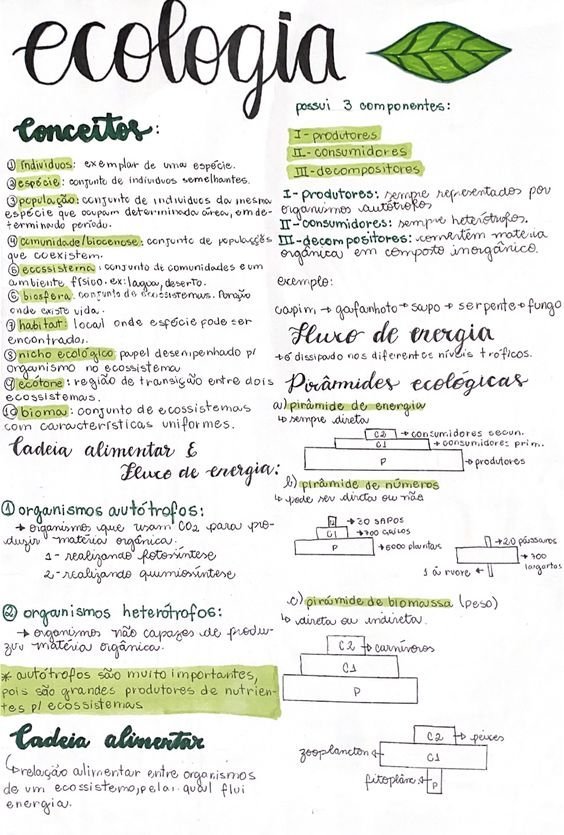 ecologia
Conceitos:
① indivíduos: exemplar de uma espécie.
② espécie: conjunto de indivíduos semelhantes.
③ população: conjunto de indivíduos da mesma
espécie que ocupam determinada área, em de-
terminado período.
④ comunidade/biocenose: conjunto de populações
que coexistem.
⑤ ecossistema: conjunto de comunidades e um
ambiente físico. ex: lagoa, deserto.
⑥ biosfera: conjunto de ecossistemas. Porção
onde existe vida.
⑦ habitat: local onde espécie pode ser
encontrado.
⑧ nicho ecológico papel desempenhado p/
organismo no ecossistema
⑨ ecótone: região de transição entre dois
ecossistemas.
⑩ bioma: conjunto de ecossistemas
com características uniformes.
Cadeia alimentar &
Fluxo de energia:
① organismos autótrofos:
→ organismos que usam CO2 para pro-
duzir matéria orgânica.
1- realizando fotossíntese
2- realizando quimiossíntese
② organismos heterótrofos:
→ organismos não capazes de produ-
zir matéria orgânica.
* autótrofos são muito importantes,
pois são grandes produtores de nutrien-
tes p/ ecossistemas
Cadeia alimentar
↳ relação alimentar entre organismos
de um ecossistema, pela qual flui
energia.
possui 3 componentes:
I- produtores
II- consumidores
III- decompositores
I- produtores: sempre representados por
organismos autótrofos
II- consumidores: sempre heterótrofos.
III- decompositores: convertem matéria
orgânica em composto inorgânico.
exemplo:
capim → gafanhoto → sapo → serpente → fungo
Fluxo de energia
→ é dissipado nos diferentes níveis tróficos.
Pirâmides ecológicas
a) pirâmide de energia
↳ sempre direta
C2 → consumidores secun.
C1 → consumidores prim.
P → produtores
b) pirâmide de números
↳ pode ser direta ou não
→ 30 sapos
C1 → 700
P → 6000 plantas
→ 20 pássaros
→ 300
lagartas
1 árvore ←
c) pirâmide de biomassa (peso)
↳ direta ou indireta.
C2 → carnívoros
C1
P
C2 → peixes
zooplancton ← C1
fitoplânc. ← P